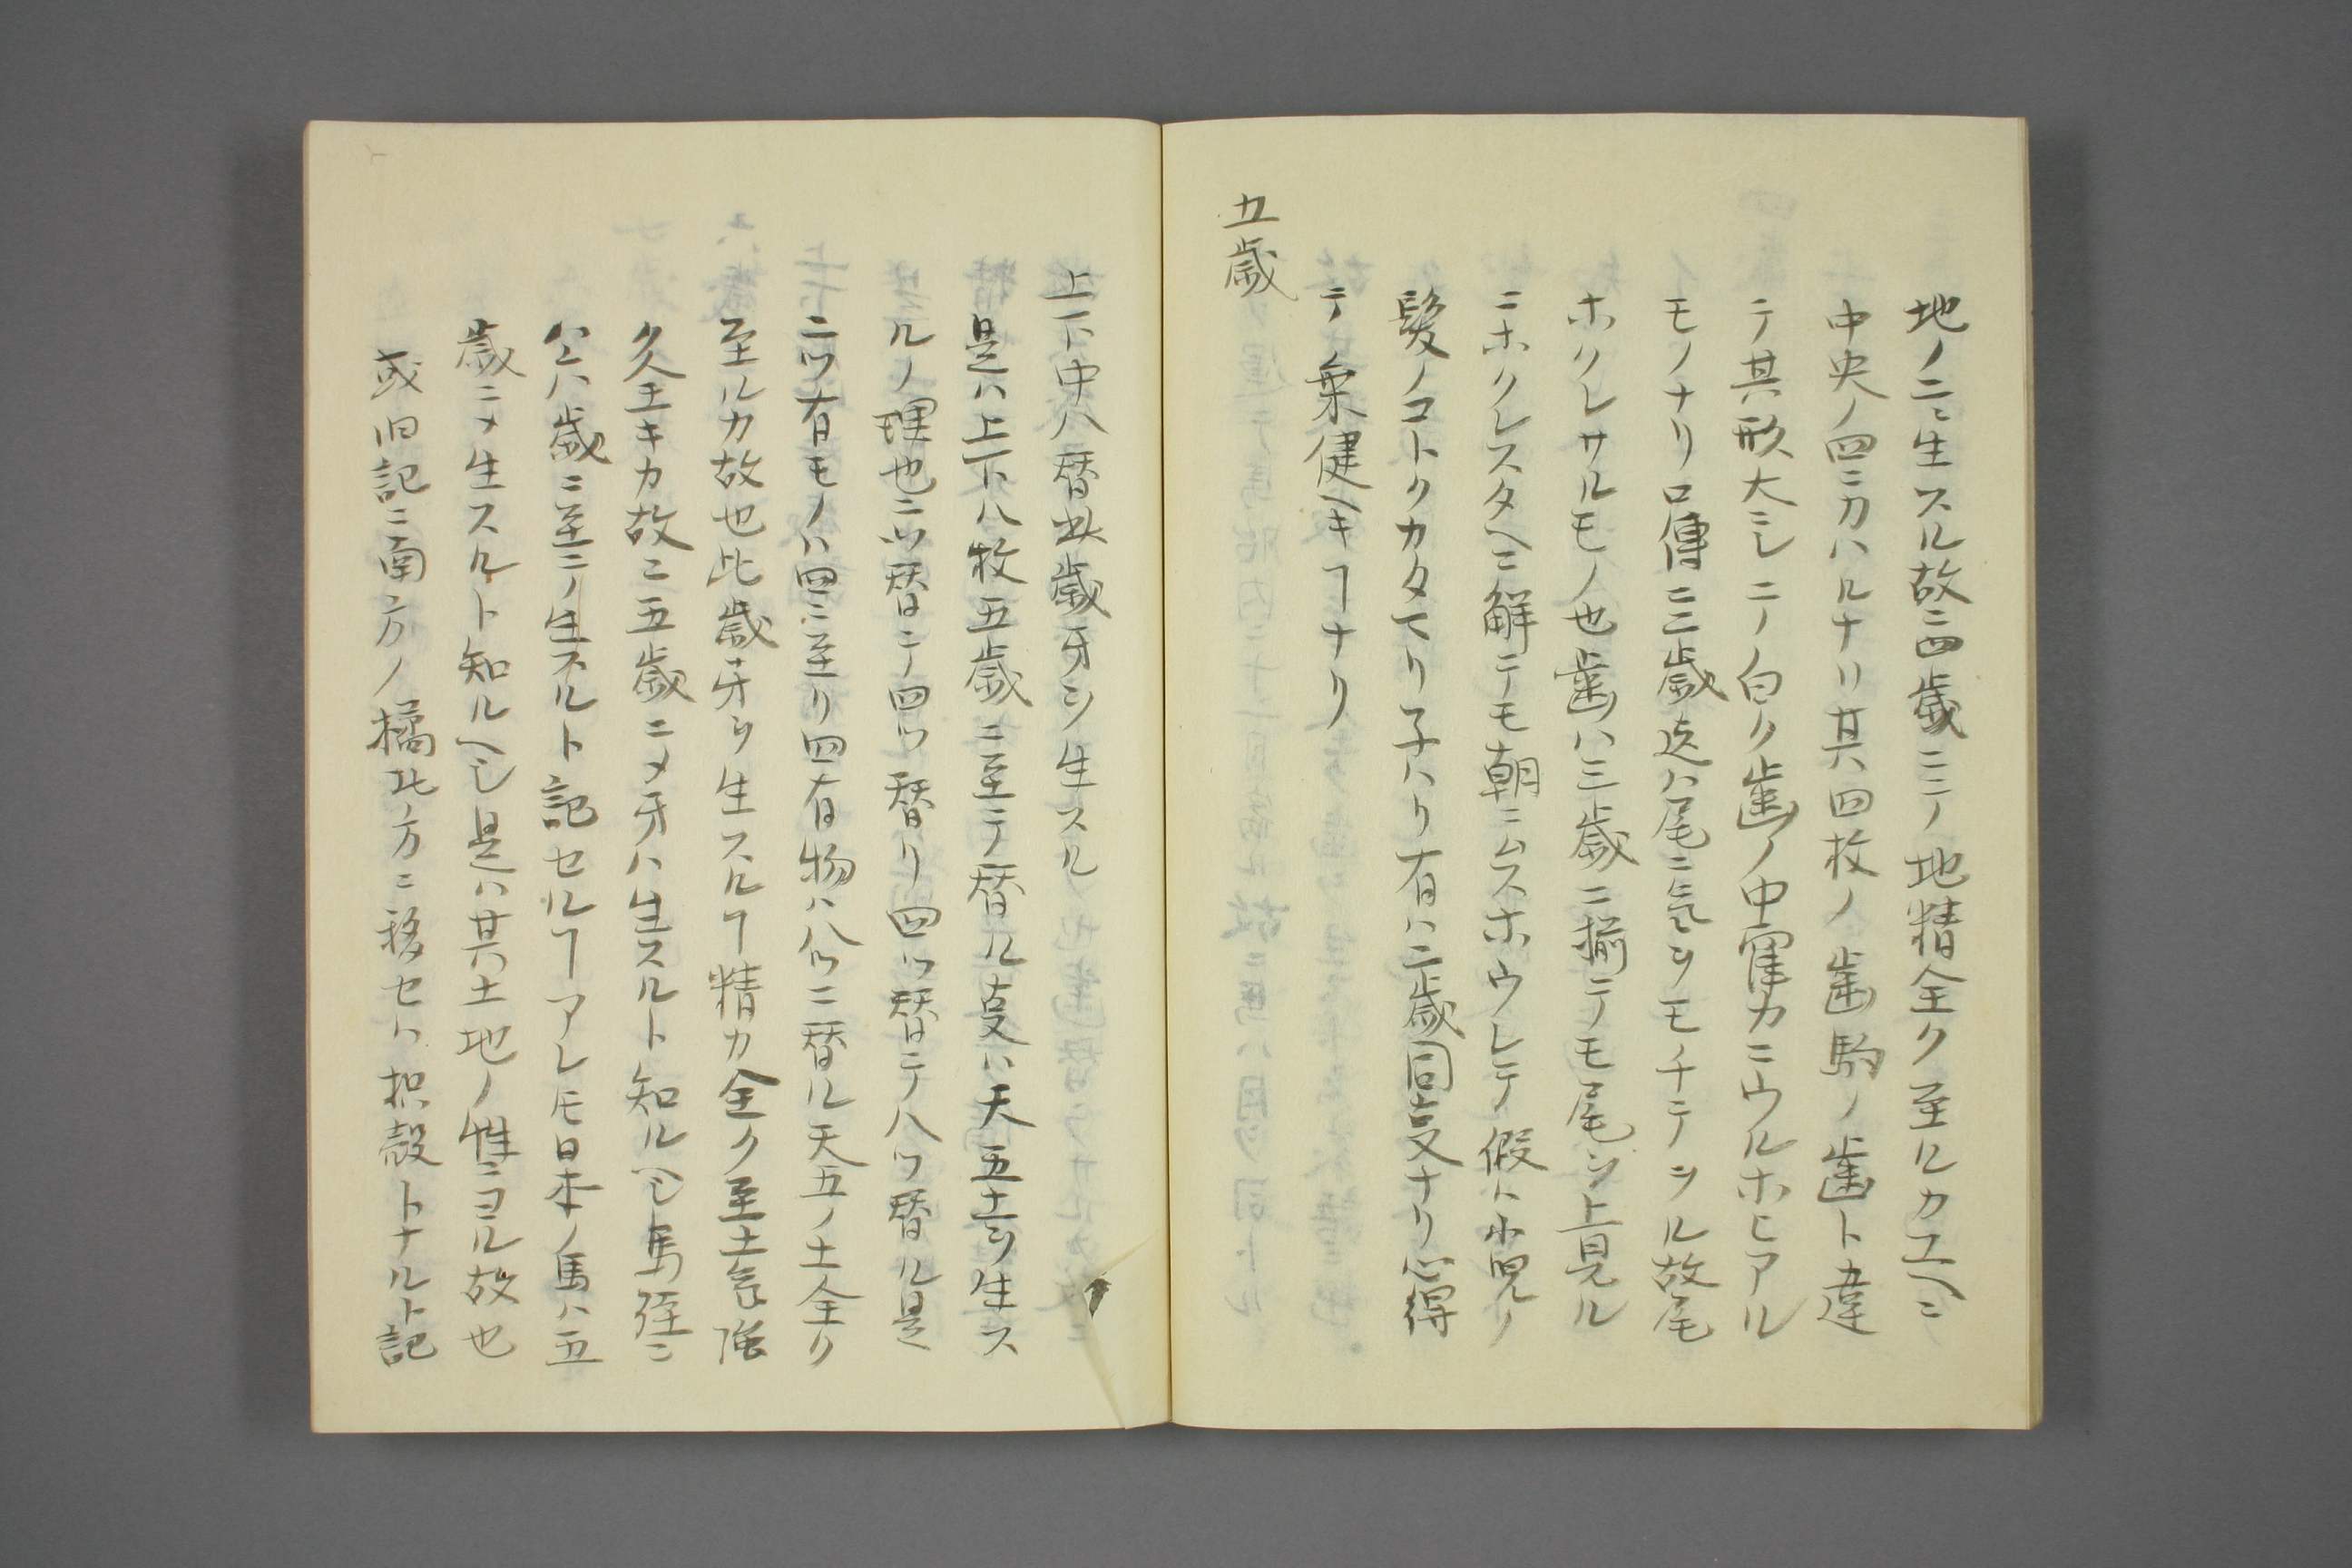 地ノ二ニ生スル故ニ四歳ニ二ノ地精全ク至ルカユヘニ
中央ノ四ニカハルナリ其四枚ノ歯駒ノ歯ト違
テ其形大ニシニノ白ク歯ノ中窪カニウルホヒアル
モノナリ口傳ニ三歳迄ハ尾ニ氣ヲモチテツル故尾
ホクレサルモノ也歯ハ三歳ニ揃テモ尾ヲ上見ル
ニホクレスタヘニ解テモ朝ニムスホウレテ假ハ小児ノ
髪ノコトクカタマリ子ハリ有ハ二歳同支ナリ心得
テ乗健ヘキヿナリ
五歳
上下中ハ替出歳牙ヲ生スル
是ハ上下八枚五歳ニ至テ替ル支ハ天五土ヲ生ス
ルノ理也二ツ替テ四ツ替リ四ツ替テ八ツ替ル是
二ツ有モノハ四ニ至リ四有物ハ八ツニ替ル天五ノ土全ク
至ルカ故也此歳牙ヲ生スルヿ精力全ク至土氣強
久キカ故ニ五歳ニメ牙ハ生スルト知ルヘシ馬經ニ
公ハ歳ニ至テノ生スルト記セルヿアレ𪜈日本ノ馬ハ五
歳ニメ生スルト知ルヘシ是ハ其土地ノ性ニヨル故也
或旧記ニ南方ノ橘北ノ方ニ移セハ枳殻トナルト記